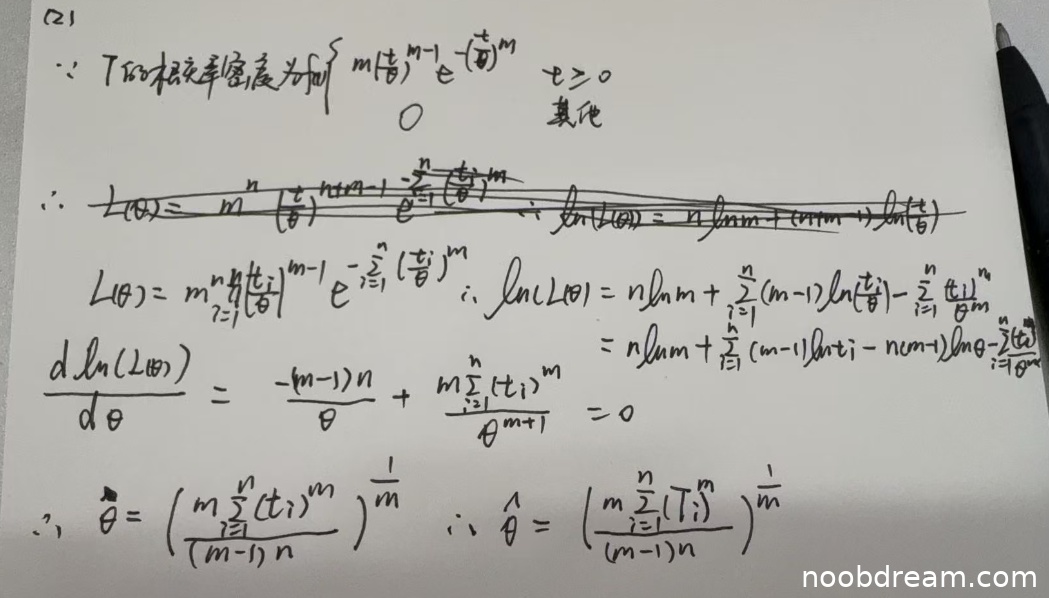 (2)
∵ T的概率密度为f(t) { m(t/θ)^{m-1} e^{-(t/θ)^m} t≥0
0 其他
∴ L(θ) = m^n (t/θ)^{n+m-1} e^{-∑_{i=1}^{n} (t_i/θ)^m} ∴ ln(L(θ)) = n ln m + (n+m-1) ln(t/θ)
L(θ) = m^n ∏_{i=1}^{n} (t_i/θ)^{m-1} e^{-∑_{i=1}^{n} (t_i/θ)^m} ∴ ln(L(θ)) = n ln m + ∑_{i=1}^{n} (m-1) ln(t_i/θ) - ∑_{i=1}^{n} (t_i)^m/θ^m
= n ln m + ∑_{i=1}^{n} (m-1) ln t_i - n(m-1) ln θ - ∑_{i=1}^{n} (t_i)^m/θ^m
d ln(L(θ))/dθ = -(m-1)n/θ + m∑_{i=1}^{n} (t_i)^m/θ^{m+1} = 0
∴ θ = (m∑_{i=1}^{n} (t_i)^m/((m-1)n))^{1/m} ∴ θ̂ = (m∑_{i=1}^{n} (T_i)^m/((m-1)n))^{1/m}
noobdream.com